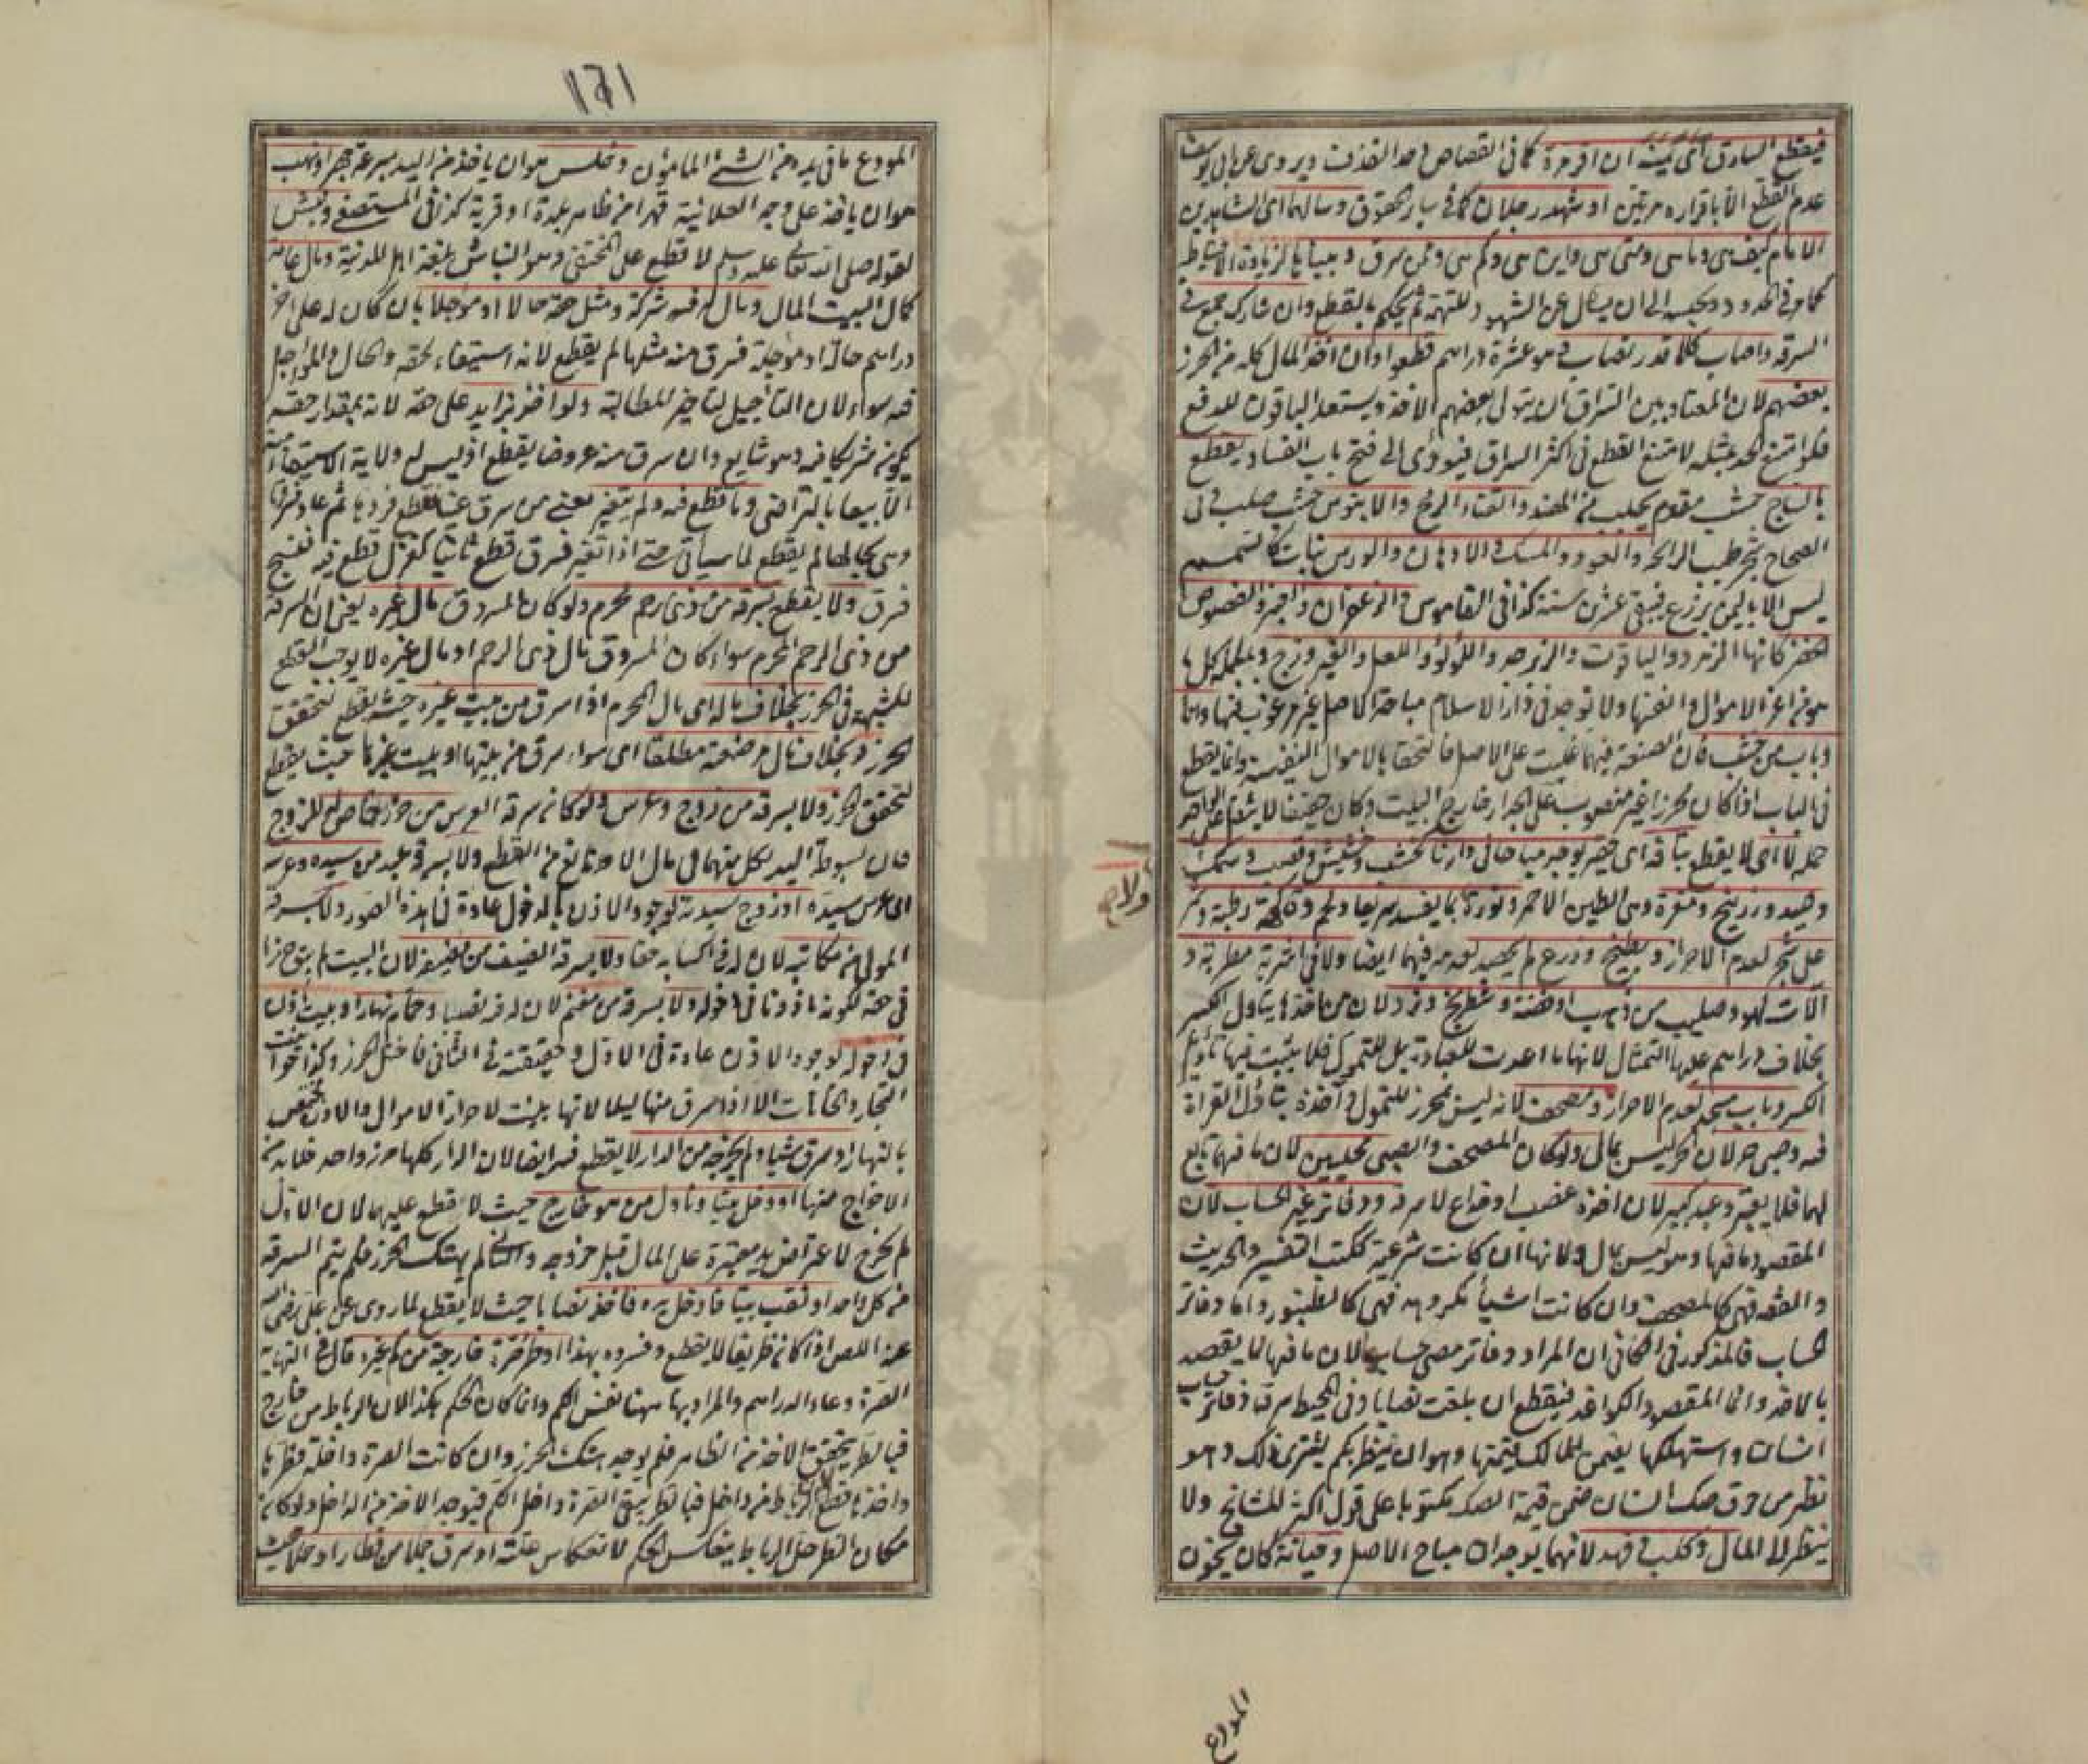 فيقطع السارق اى يمينه ان اقر مرة كما فى القصاص وحد القذف ويروى عن ابى يوسف
عدم القطع الا باقراره مرتين او شهد رجلان كما فى سائر الحقوق وسألهما اى الشاهدين
الامام كيف هى وما هى ومتى هى واين هى وكم هى وممن سرق وبيناها لزيادة الاحتياط
كما مر فى الحدود ويحبسه الى ان يسأل عن الشهود للتهمة ثم يحكم بالقطع وان شارك جمع فى
السرقة واصاب كلا قدر نصاب وهو عشرة دراهم قطعوا وان اخذ المال كله من الحرز
بعضهم لان المعتاد بين السراق ان يتولى بعضهم الاخذ ويستعد الباقون للدفع
فلو امتنع الحد بمثله لامتنع القطع فى اكثر السراق فيؤدى الى فتح باب الفساد يقطع
بالساج خشب مقوم يجلب من الهند والقنا والرمح والابنوس خشب صلب فى
الصحاح شجر طيب الرائحة والعود والمسك والادهان والورس نبات كالسمسم
ليس الا باليمن يزرع فيبقى عشرين سنة كذا فى القاموس والزعفران والعنبر والفصوص
الخضر كانها الزمرد والياقوت والزبرجد واللؤلؤ واللعل والفيروزج وبالجملة كل ما
هو من اعز الاموال وانفسها ولا توجد فى دار الاسلام مباحة الاصل غير مرغوب فيها واناء
وباب من خشب فان الصنعة فيهما غلبت على الاصل فالتحقا بالاموال النفيسة وانما يقطع
فى الباب اذا كان محرزا غير منصوب على الجدار خارج البيت وكان خفيفا لا يثقل على الواحد
حمله لا اى لا يقطع بتافه اى حقير يوجد مباحا فى دارنا كخشب وحشيش وقصب وسمك
وصيد وزرنيخ ومغرة وهى الطين الاحمر ونورة وبما يفسد سريعا ولحم وفاكهة رطبة وثمر
على شجر لعدم الاحراز وبطيخ وزرع لم يحصد لعدمه فيهما ايضا ولا فى اشربة مطربة و
آلات لهو وصليب من ذهب او فضة وشطرنج ونرد لان من اخذها يتأول الكسر
بخلاف دراهم عليها التمثال لانها ما اعدت للعبادة بل للتمول فلا يثبت فيها تأويل
الكسر وباب مسجد لعدم الاحراز ومصحف لانه ليس محرز للتمول وآخذه يتأول القراءة
فيه وصبى حر لان الحر ليس بمال ولو كان المصحف والصبى محليين لان ما فيهما تابع
لهما فلا يعتبر وعبد كبير لان اخذه غصب او خداع لا سرقة ودفاتر غير الحساب لان
المقصود ما فيها وهو ليس بمال ولانها ان كانت شرعية ككتب التفسير والحديث
والفقه فهى كالمصحف وان كانت اشياء مكروهة فهى كالطنبور واما دفاتر
الحساب فالمذكور فى الكافى ان المراد دفاتر مضى حسابها لان ما فيها لا يقصد
بالاخذ وانما المقصود الكواغد فيقطع ان بلغت نصابا وفى المحيط سرق دفاتر حساب
انسان واستهلكها يضمن للمالك قيمتها وهو ان ينظر بكم يشترى ذلك وهو
نظير من خرق صك انسان ضمن قيمة الصك مكتوبا على قول اكثر المشائخ ولا
ينظر الى المال وكلب وفهد لانهما يوجدان مباح الاصل وخيانة كان يخون
المودع
اولاد
١٦١
المودع ما فى يده من الشئ المأمون وخلس هو ان يأخذ من اليد بسرعة جهرا ونهب
هو ان يأخذ على وجه العلانية قهرا من ظاهر بلدة او قرية كذا فى المستصفى ونبش
لقوله صلى الله تعالى عليه وسلم لا قطع على المختفى وهو النباش بلغة اهل المدينة ومال عامة
كمال البيت المال ومال فيه شركة ومثل حقه حالا او مؤجلا بان كان له على آخر
دراهم حالة او مؤجلة فسرق منه مثلها لم يقطع لانه استيفاء لحقه والحال والمؤجل
فيه سواء لان التأجيل لتأخير المطالبة ولو اخذ بزايد على حقه لانه بمقدار حقه
يكون شريكا فيه وهو شايع وان سرق منه عروضا يقطع اذ ليس له ولاية الاستيفاء منه
الا بيعا بالتراضى وما قطع فيه ولم يتغير يعنى من سرق عينا فقطع فردها ثم عاد فسرقها
وهى بحالها لم يقطع لما سيأتى حتى اذا تغير فسرق قطع ثانيا كغزل قطع فيه فنسج
فسرق ولا يقطع بسرقة من ذى رحم محرم ولو كان المسروق مال غيره يعنى ان السرقة
من ذى الرحم المحرم سواء كان المسروق مال ذى الرحم او مال غيره لا يوجب القطع
للشبهة فى الحرز بخلاف ماله اى مال المحرم اذا سرق من بيت غيره حيث يقطع لتحقق
الحرز وبخلاف مال مرضعته مطلقا اى سواء سرق من بيتها او بيت غيرها حيث يقطع
لتحقق الحرز ولا بسرقة من زوج وعرس ولو كان سرقة العرس من حرز خاص للزوج
فان بسوطة اليد لكل منهما فى مال الاخر مانع من القطع ولا بسرقة عبد من سيده وعرسه
اى عرس سيده او زوج سيدته لوجود الاذن بالدخول عادة فى هذه الصور ولا بسرقة
المولى من مكاتبه لان له فى اكسابه حقا ولا بسرقة الضيف من مضيفه لان البيت لم يبق حرزا
فى حقه لكونه مأذونا فى دخوله ولا بسرقة من مغنم لان له فيه نصيبا وحمام نهارا وبيت اذن
فى دخوله لوجود الاذن عادة فى الاول وحقيقة فى الثانى فاختل الحرز وكذا حوانيت
التجار والخانات الا اذا سرق منها ليلا لانها بنيت لاحراز الاموال والاذن مختص
بالنهار او سرق شيا ولم يخرجه من الدار لا يقطع فيه ايضا لان الدار كلها حرز واحد فلا بد من
الاخراج منها او دخل بيتا وناول من هو خارج حيث لا قطع عليهما لان الاول
لم يخرج لاعتراض يد معتبرة على المال قبل خروجه والثانى لم يهتك الحرز فلم يتم السرقة
من كل واحد او نقب بيتا فادخل يده فاخذ نصابا حيث لا يقطع لما روى عن على رضى الله
عنه اللص اذا كان ظريفا لا يقطع وفسروه بهذا او طر صرة خارجة من كم غيره قال فى النهاية
الصرة وعاء الدراهم والمراد بها ههنا نفس الكم وانما كان الحكم هكذا لان الرباط من خارج
فبالطر يتحقق الاخذ من الظاهر فلم يوجد هتك الحرز وان كانت الصرة داخلة فطرها
واخذها قطع لان الرباط من داخل فبالطر يبقى الصرة داخل الكم فيوجد الاخذ من الداخل ولو كان
مكان الطر حل الرباط ينعكس الحكم لانعكاس علته او سرق جملا من قطار او حملا حيث